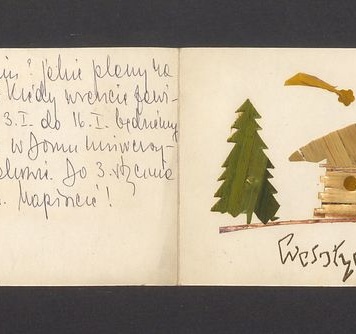 jakie plany na
Kiedy wreszcie
3. I. do 16. I. będziemy
w Domu Uniwersy-
Do 3. stycznia
Napiszcie!
Wesoły